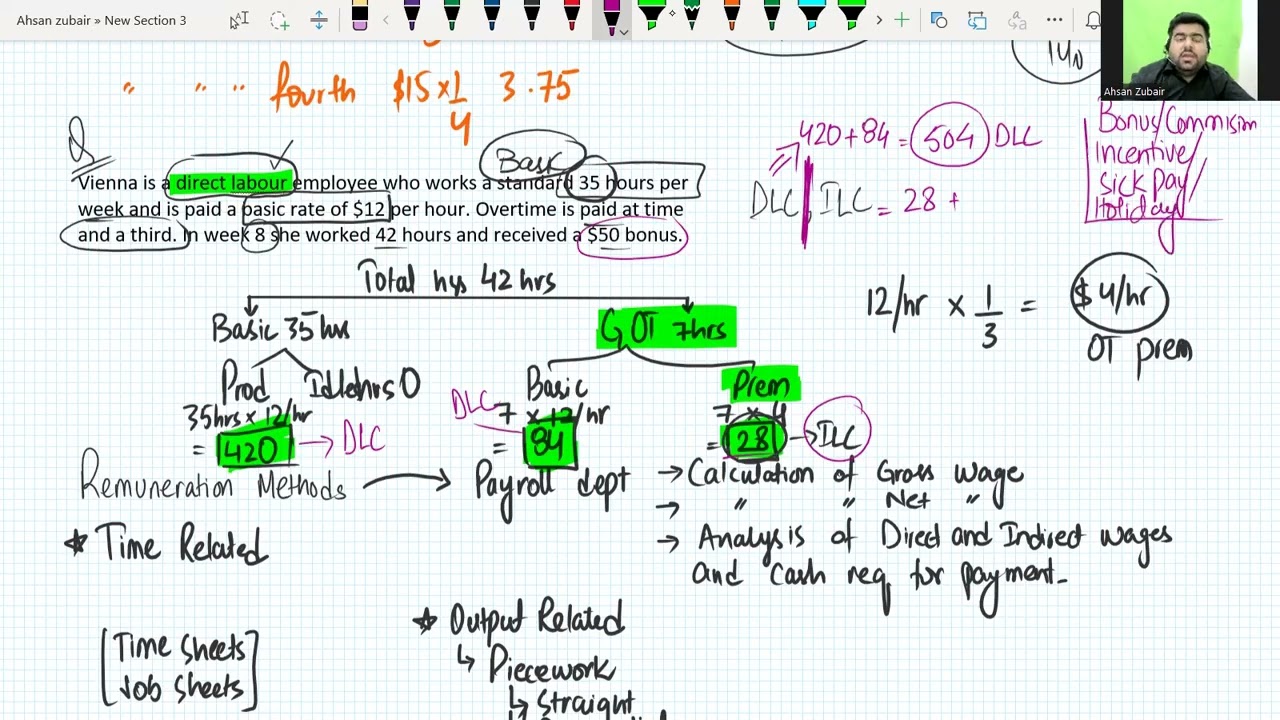 Ahsan zubair » New Section 3
Ahsan Zubair
" " " fourth $15 x 1/4 3.75
Q
Basic
Vienna is a direct labour employee who works a standard 35 hours per
week and is paid a basic rate of $12 per hour. Overtime is paid at time
and a third. In week 8 she worked 42 hours and received a $50 bonus.
420+84 = 504 DLC
DLC ILC = 28 +
Bonus/Commision
Incentive/
Sick pay/
Holiday
12/hr x 1/3 = $4/hr
OT prem
Total hrs 42 hrs
Basic 35 hrs
GOT 7hrs
Prod Idle hrs 0
Basic
Prem
35hrs x 12/hr
DLC 7 x 12/hr
7 x 4
= 420 → DLC
= 84
= 28 → ILC
Remuneration Methods → Payroll dept
→ Calculation of Gross wage
→ " " Net "
→ Analysis of Direct and Indirect wages
and cash req for payment.
* Time Related
[Time Sheets
Job Sheets]
* Output Related
↳ Piecework
↳ Straight